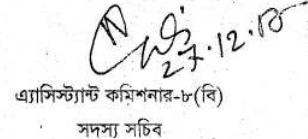 27.12.18
এ্যাসিস্ট্যান্ট কমিশনার-৮(বি)
সদস্য সচিব